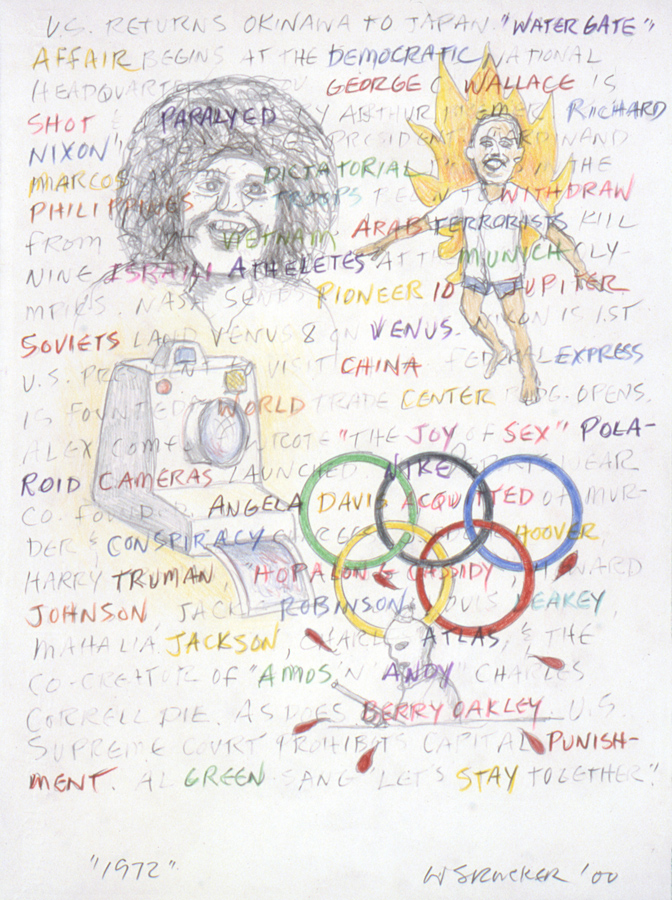 U.S. RETURNS OKINAWA TO JAPAN. "WATERGATE"
AFFAIR BEGINS AT THE DEMOCRATIC NATIONAL
GEORGE C WALLACE IS
SHOT & PARALYED BY ARTHUR BREMER. RICHARD
NIXON PRESIDENT
MARCOS DICTATORIAL IN THE
PHILIPPINES TROOPS BEGIN TO WITHDRAW
FROM VIETNAM. ARAB TERRORISTS KILL
NINE ISRAILI ATHELETES AT THE MUNICH OLY-
MPICS. NASA SENDS PIONEER 10 TO JUPITER.
SOVIETS LAND VENUS 8 ON VENUS. NIXON IS 1ST
U.S. PRESIDENT TO VISIT CHINA. FEDERAL EXPRESS
IS FOUNDED. WORLD TRADE CENTER BLDG. OPENS.
ALEX COMFORT WROTE "THE JOY OF SEX". POLA-
ROID CAMERAS LAUNCHED. NIKE SPORTSWEAR
CO. FOUNDED. ANGELA DAVIS ACQUITTED OF MUR-
DER & CONSPIRACY CHARGES. HOOVER,
HARRY TRUMAN, "HOPALONG CASSIDY", HOWARD
JOHNSON, JACKIE ROBINSON, LOUIS LEAKEY,
MAHALIA JACKSON, CHARLES ATLAS, & THE
CO-CREATOR OF "AMOS 'N' ANDY" CHARLES
CORRELL DIE. AS DOES BERRY OAKLEY. U.S.
SUPREME COURT PROHIBITS CAPITAL PUNISH-
MENT. AL GREEN SANG "LET'S STAY TOGETHER".
"1972"
'00